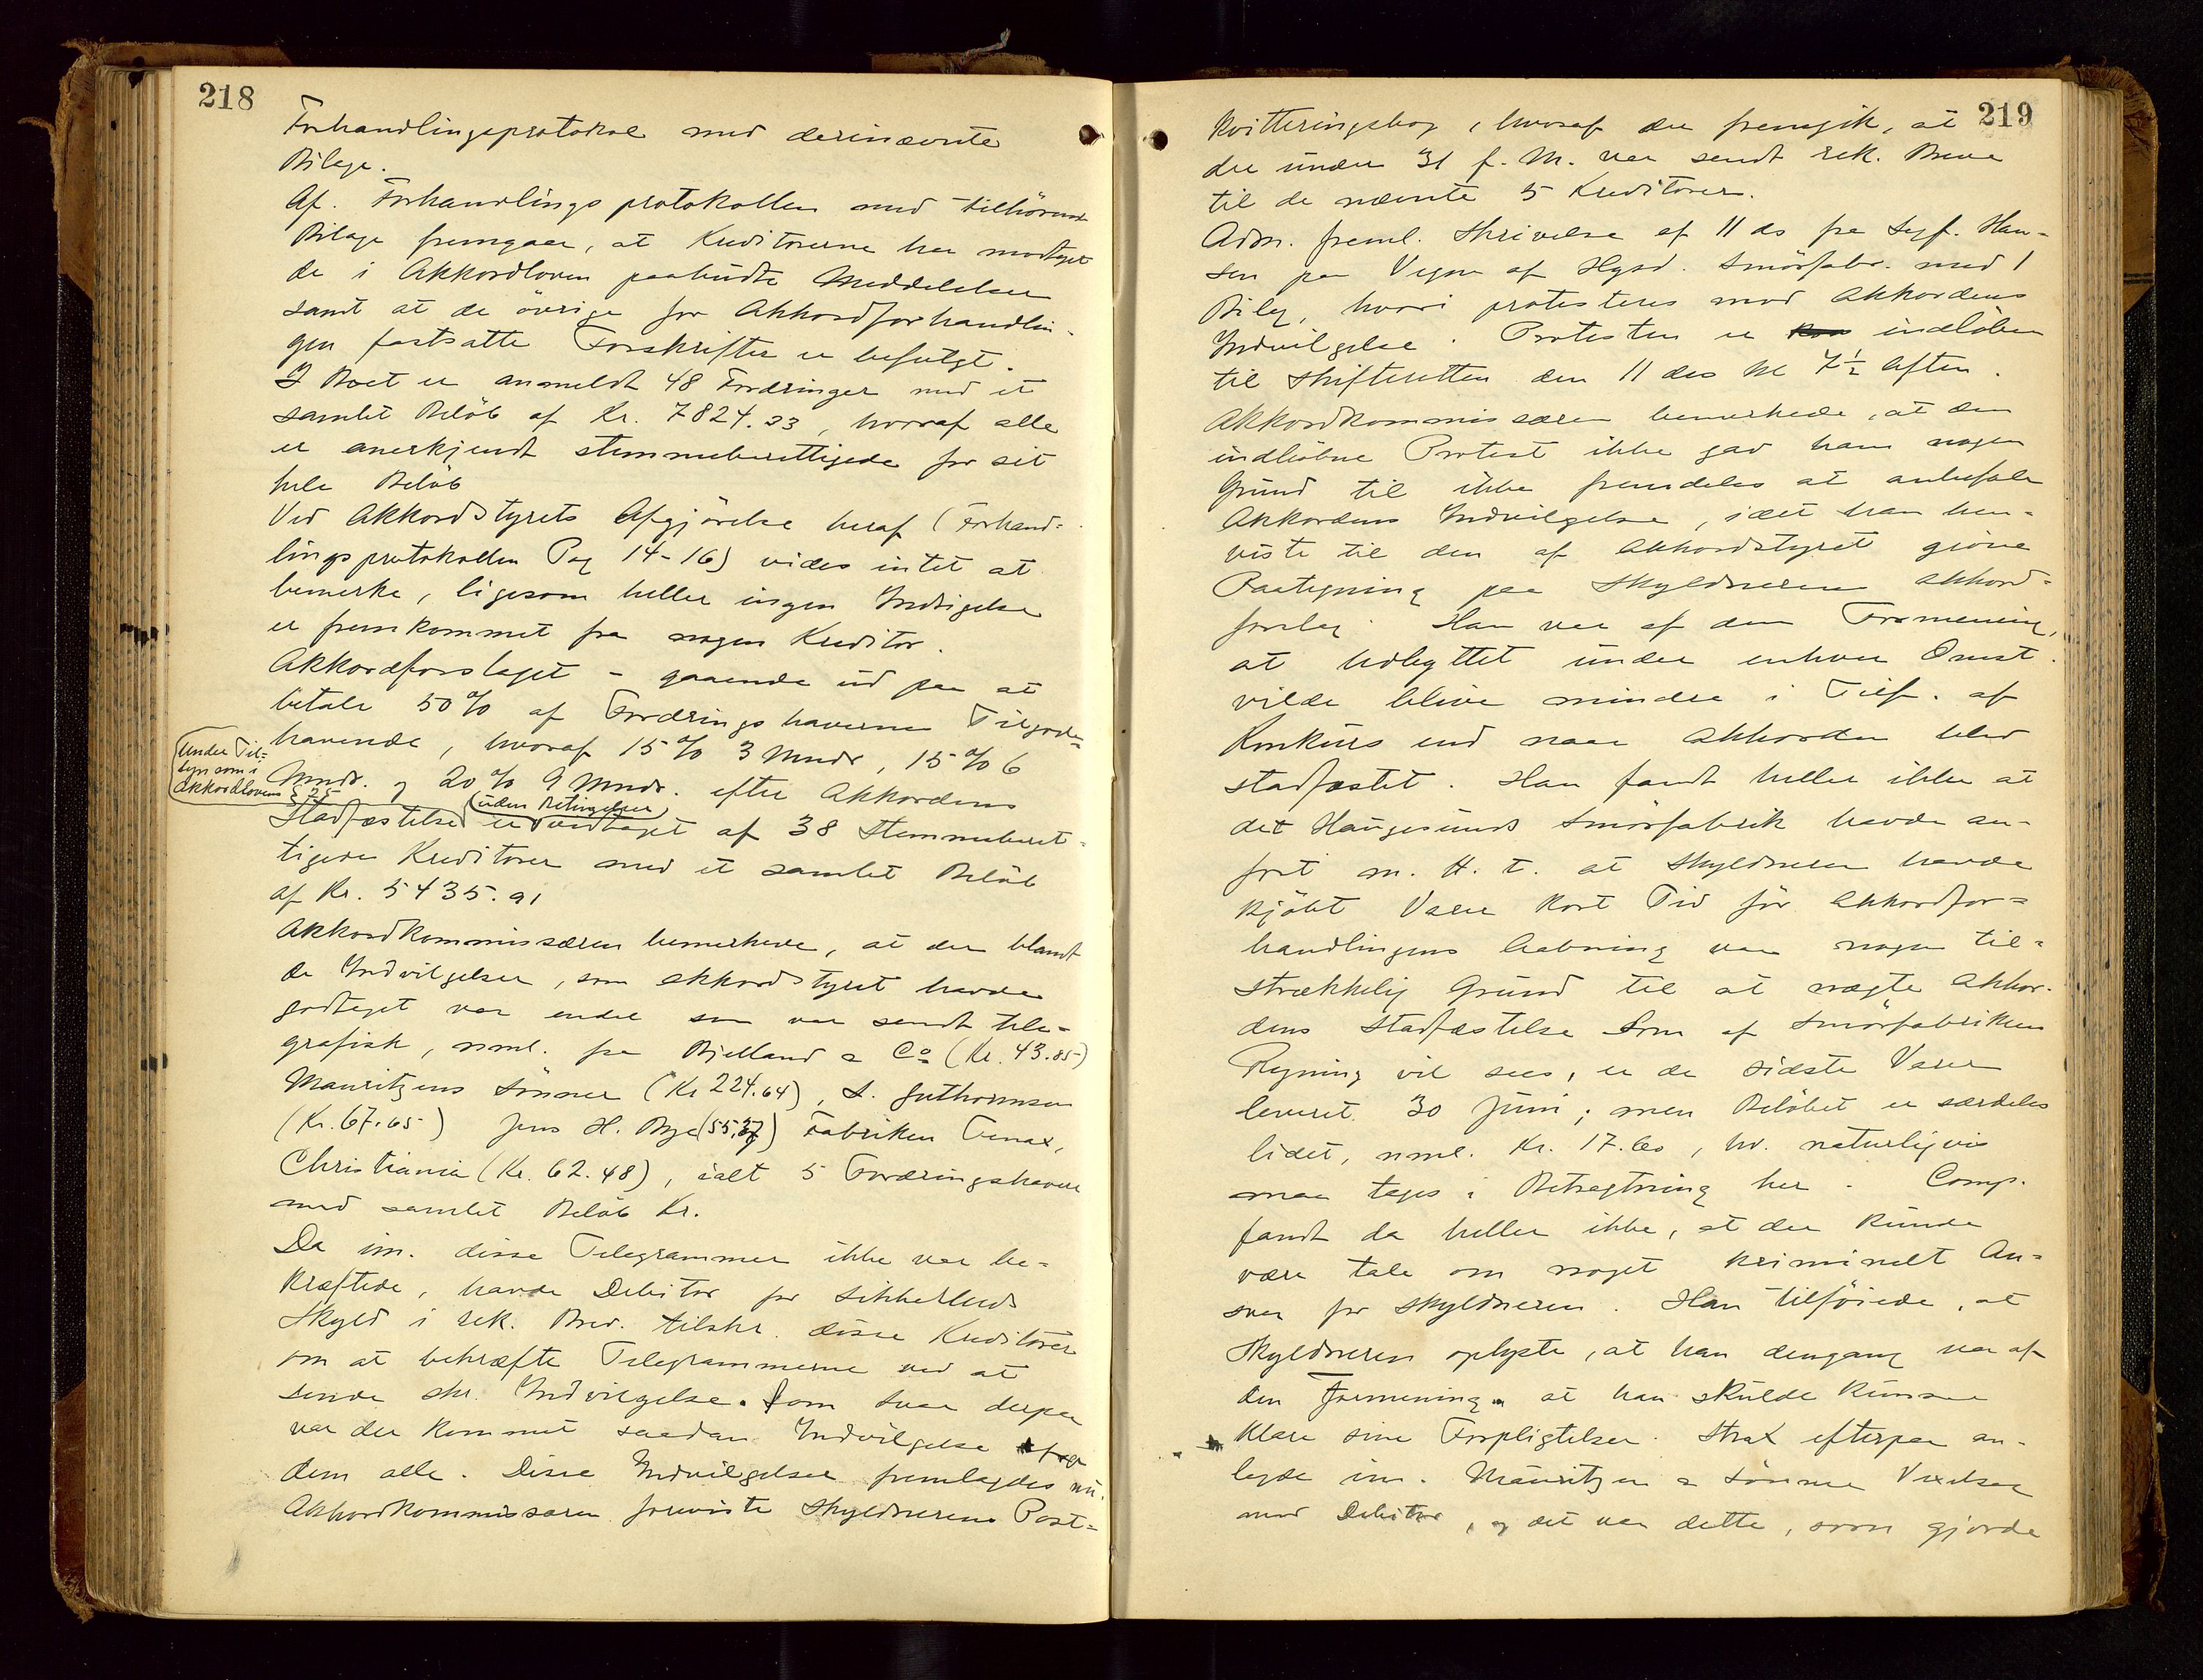 218
Forhandlingsprotokol med derinævnte
Bilage.
Af. Forhandlingsprotokollen med tilhörende
Bilage fremgaar, at Kreditorerne har modtaget
de i Akkordloven paabudte Meddelelser
samt at de övrige for Akkordforhandlin-
gen fastsatte Forskrifter er befulgt.
I Boet er anmeldt 48 Fordringer med et
samlet Belöb af Kr. 7824.33, hvoraf alle
er anerkjendt stemmeberettigede for sit
hele Belöb
Ved Akkordstyrets Afgjörelse heraf (Forhand-
lingsprotokollen Pag 14-16) vides intet at
bemerke, ligesom heller ingen Indsigelse
er fremkommet fra nogen Kreditor.
Akkordforslaget - gaaende ud paa at
betale 50% af Fordringshavernes Tilgode-
havende, hvoraf 15% 3 Mndr, 15% 6
Mndr. og 20% 9 Mndr. efter Akkordens
under Til-
syn som i
Akkordlovens § 25
(uden Betingelser)
Stadfæstelse er vedtaget af 38 Stemmeberet-
tigede Kreditorer med et samlet Belöb
af Kr. 5435.91
Akkordkommissæren bemerkede, at der blandt
de Indvilgelser, som akkordstyret havde
godtaget var endel som var sendt tele-
grafisk, nml. fra Bjelland & Co (Kr. 43.85)
Mauritzens Sönner (Kr 224.64), S. Guthormsen
(Kr. 67.65) Jens H. Bye (55,37) Fabriken Tenax,
Christiania (Kr. 62.48), ialt 5 Fordringshavere
med samlet Belöb Kr.
Da im. disse Telegrammer ikke var be-
kræftede, havde Debitor for Sikkerheds
Skyld i rek. Brev. tilskr. disse Kreditorer
om at bekræfte Telegrammerne ved at
sende skr. Indvilgelse. Som Svar derpaa
var der kommet saadan Indvilgelse fra
dem alle. Disse Indvilgelser fremlagdes nu.
Akkordkommissæren foreviste Skyldnerens Post-
219
kvitteringsbog, hvoraf der fremgik, at
der under 31 f. M. var sendt rek. Breve
til de nævnte 5 Kreditorer.
Adm. freml. Skrivelse af 11 ds fra Sagf. Han-
sen paa Vegne af Hgsd. Smörfabr. med 1
Bilag, hvori protesteres mod Akkordens
Indvilgelse. Protesten er indlöben
til Skifteretten den 11 des Kl 7½ Aften.
Akkordkommissæren bemerkede, at den
indlöbne Protest ikke gav ham nogen
Grund til ikke fremdeles at anbefale
Akkordens Indvilgelse, idet han hen-
viste til den af Akkordstyret gjorne
Paategning paa Skyldnerens akkord-
forslag. Han var af den Formening,
at Udbyttet under enhver Omst.
vilde blive mindre i Tilf. af
Konkurs end naar Akkorden blev
stadfæstet. Han fandt heller ikke at
det Haugesunds Smörfabrik havde an-
fört m. H. t. at Skyldneren havde
kjöbt Varer kort Tid för Akkordfor-
handlingens Aabning var nogen til-
strækkelig Grund til at nægte Akkor-
dens Stadfæstelse Som af Smörfabrikens
Regning vil sees, er de sidste Varer
leveret 30 Juni; men Belöbet er særdeles
lidet, nml. Kr. 17.60, hv. naturligvis
maa tages i Betragtning her. Comp.
fandt da heller ikke, at der kunde
være tale om noget kriminelt An-
svar for skyldneren. Han tilföiede, at
Skyldneren oplyste, at han dengang var af
den Formening, at han skulde kunne
klare sine Forpligtelser. Strax efterpaa an-
lagde im. Mauritzen & Sönner Vexelsag
mod Debitor, og det var dette, som gjorde